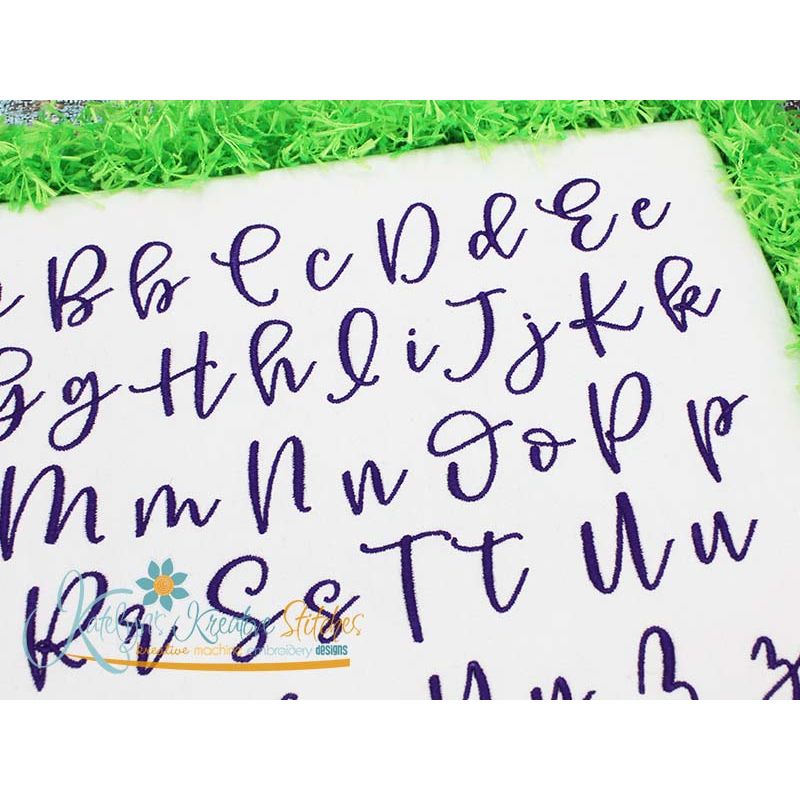 B b C c D d E e
G g H h I i J j K k
M m N n O o P p
R r S s T t U u
Z z
Katelyn's Kreative Stitches
kreative machine embroidery designs